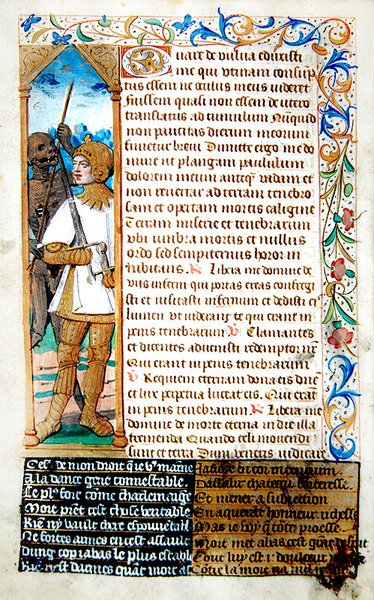 Quare de vulva eduxisti
me qui utinam consup
tus essem ne oculus meus videret
Fuissem quasi non essem de utero
translatus ad tumulum Nunquid
non paucitas dierum meorum
finietur brevi Dimitte ergo me do
mine ut plangam paululum
dolorem meum anteqm vadam et
non revertar ad terram tenebro
sam et opertam mortis caligine
Terram miserie et tenebrarum
ubi umbra mortis et nullus
ordo sed sempiternus horor in
habitans R Libera me domine de
viis inferni qui portas ereas confregi
sti et visitasti infernum et dedisti eis
lumen ut viderent te qui erant in
penis tenebrarum V Clamantes
et dicentes advenisti redemptor nr
Qui erant in penis tenebrarum
V Requiem eternam dona eis dne
et lux perpetua luceat eis Qui erant
in penis tenebrarum R Libera me
domine de morte eterna in die illa
tremenda Quando celi movendi
sunt et terra Dum veneris iudicare
Cest de mon droit que vo maine
A la dance gent connestable
Le plo fors come charlemaigne
Mort pret cest chose veritable
Rie ny vault chere espouetable
Ne fortes armes en cest assault
Dung cop iabas le plus estable
Rien nest darmes quat mort
Jauoie encor intencion
Dassalir chasteaux forteresse
Et mener a subiection
En aquerant honneur richesse
Mais ie voy q toute proesse
Mort met abas cest grant despit
Tout luy est douleur
Contre la mort na nul respit